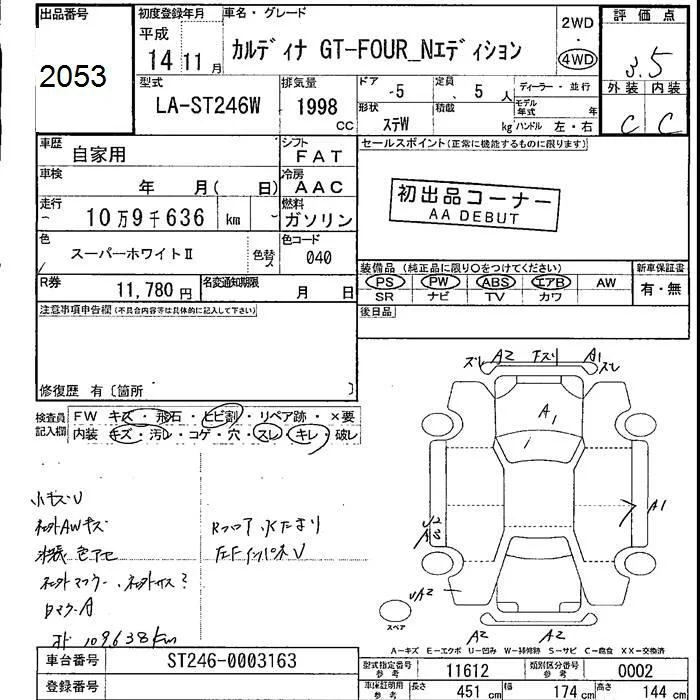 出品番号
2053
初度登録年月
平成
14 11 月
車名・グレード
カルディナ GT-FOUR_Nエディション
2WD
・
4WD
評価点
3.5
外装 内装
C C
型式
LA-ST246W
排気量
1998
CC
ドア
-5
定員
5 人
形状
ステW
積載
kg
ディーラー・並行
モデル年式 年
ハンドル 左・右
車歴
自家用
シフト
FAT
車検
年 月( 日)
冷房
AAC
走行
10万9千636 km
燃料
ガソリン
色
スーパーホワイトⅡ
色替ス
色コード
040
R券
11,780 円
名変通知期限
月 日
セールスポイント(正常に機能するものに限ります)
初出品コーナー
AA DEBUT
装備品 (純正品に限り○をつけてください)
PS PW ABS エアB AW
SR ナビ TV カワ
新車保証書
有・無
後日品
注意事項申告欄(不具合内容等は具体的に記入して下さい)
修復歴 有〔箇所 〕
検査員記入欄
FW キズ・飛石・ヒビ割・リペア跡・×要
内装 キズ・汚レ・コゲ・穴・スレ・キレ・破レ
小キズU
社外AWキズ
Rフロア水たまり
社外マフラー、社外サス?
ロマフA
109,638km
ズレ A2 下スリ A1 ズレ
A1
A1
UA2
A2 A2
スペア
A-キズ E-エクボ U-凹み W-補修跡 S-サビ C-腐食 XX-交換済
車台番号
ST246-0003163
登録番号
型式指定番号 参考
11612
類別区分番号 参考
0002
車庫証明用 参考
長さ 451 cm
幅 174 cm
高さ 144 cm